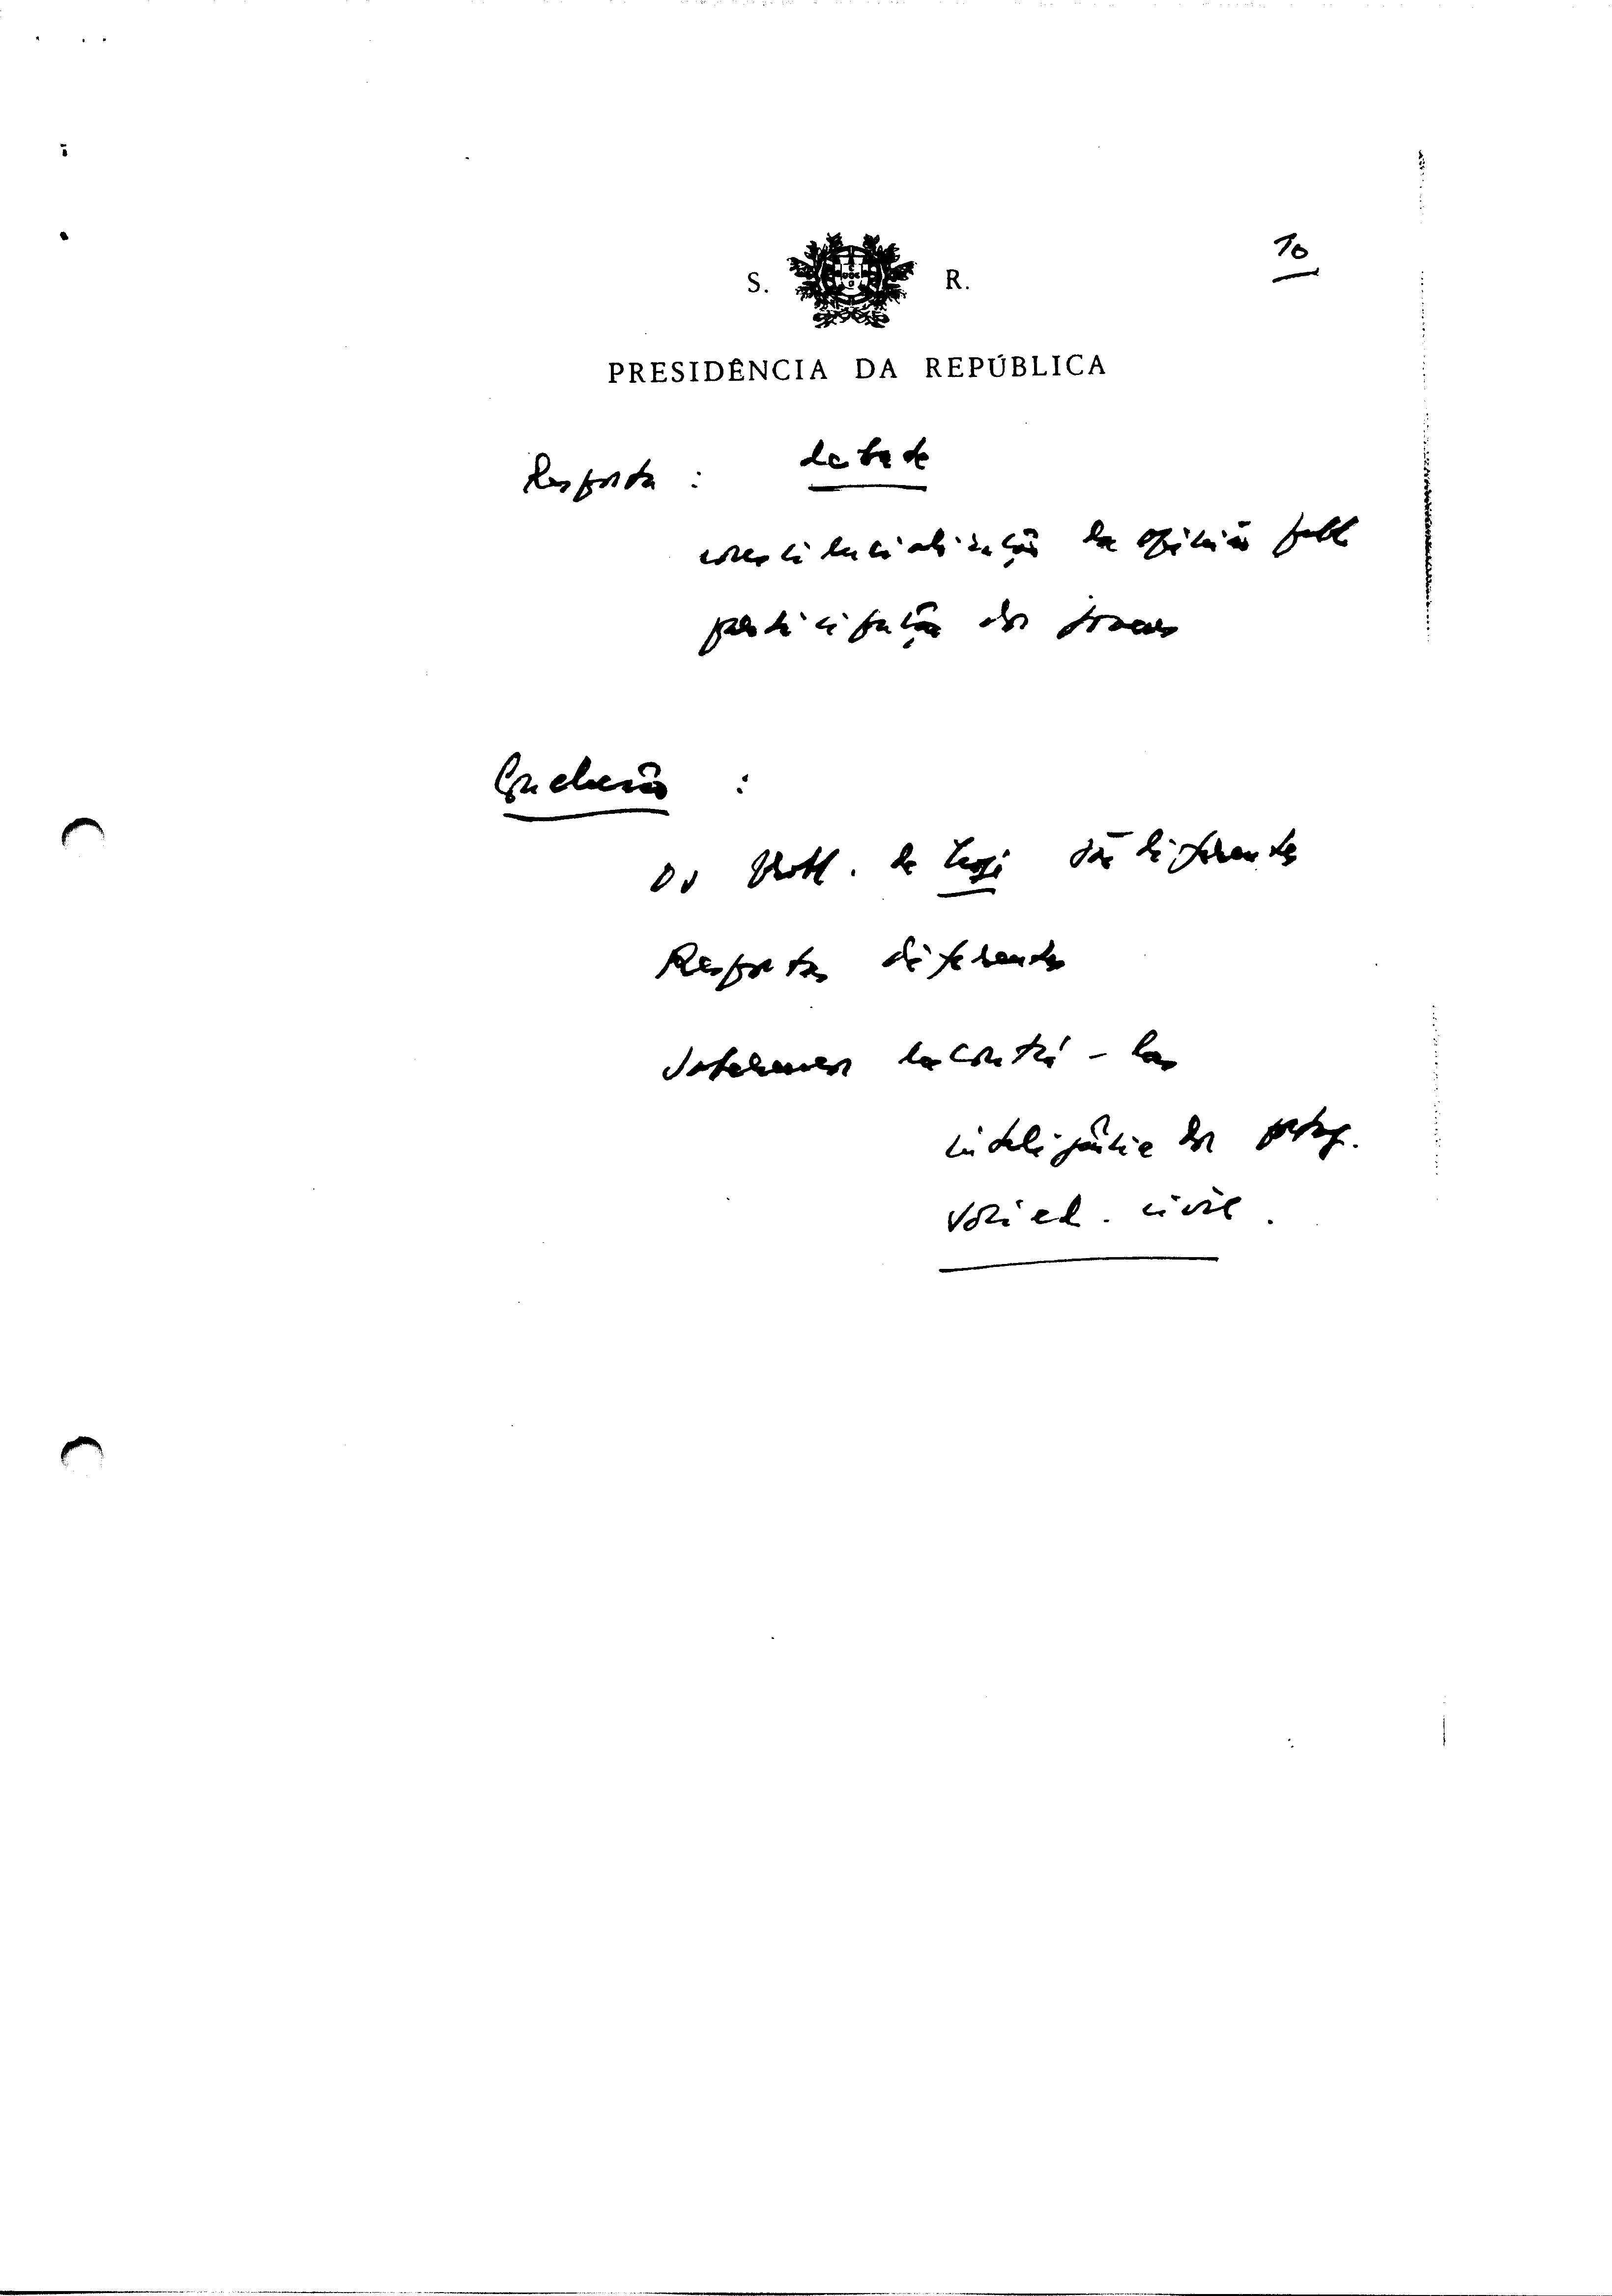 10
S. R.
PRESIDÊNCIA DA REPÚBLICA
Resposta : debate
consciencialização da opinião publ
participação dos jovens
Conclusão :
Os Probl. de hoje são diferentes
Respostas diferentes
Saberemos encontrá-las
inteligência dos portug.
socied. civil.